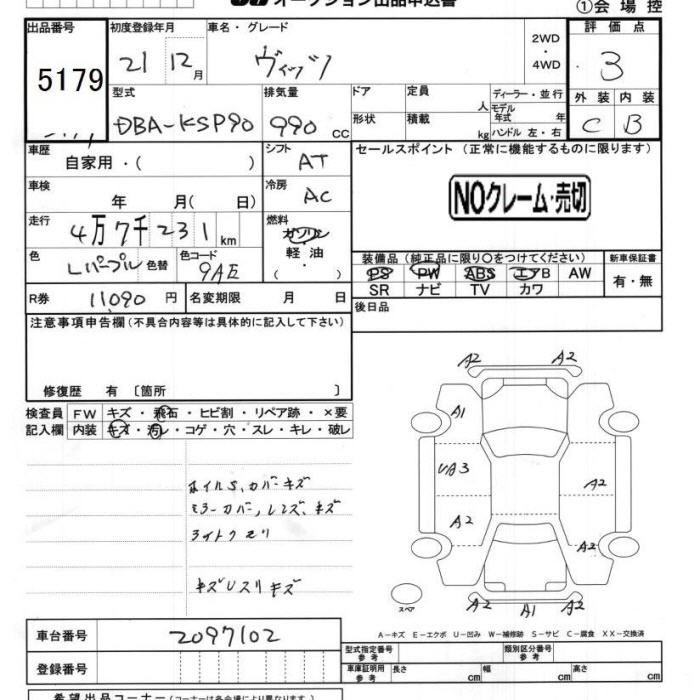 オークション出品申込書
①会場控
出品番号 初度登録年月 車名・グレード 2WD ・ 4WD 評価点
5179 21 12月 ヴィッツ 3
型式 排気量 ドア 定員 人 ディーラー・並行 外装 内装
DBA-KSP90 990 CC 形状 積載 kg モデル年式 年 ハンドル 左・右 C B
車歴 自家用・( ) シフト AT セールスポイント (正常に機能するものに限ります)
車検 年 月( 日) 冷房 AC NOクレーム・売切
走行 4万7千231km 燃料 ガソリン
色 Lパープル 色替 色コード 9AE 軽油 ・ ( )
装備品 (純正品に限り〇をつけてください) 新車保証書
PS PW ABS エアB AW 有・無
SR ナビ TV カワ
R券 11090円 名変期限 月 日 後日品
注意事項申告欄(不具合内容等は具体的に記入して下さい)
修復歴 有 〔箇所 〕
検査員 FW キズ・飛石・ヒビ割・リペア跡・×要
記入欄 内装 キズ・汚レ・コゲ・穴・スレ・キレ・破レ
ホイルS、カバーキズ
ミラーカバー、レンズ、キズ
ライトクモリ
キズUスリキズ
A2 A2
A1
UA3 A2
A2 A2
スペア
A2 A1 A2
A-キズ E-エクボ U-凹み W-補修跡 S-サビ C-腐食 XX-交換済
車台番号 2097102
型式指定番号 参考 類別区分番号 参考
登録番号 車庫証明用 参考 長さ cm 幅 cm 高さ cm
希望出品コーナー(コーナーは各会場により異なります。)